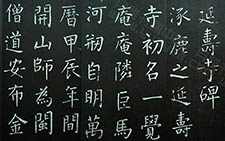 延壽寺碑
涿鹿之延壽
寺初名一覺
庵庵隣巨馬
河朔自明萬
曆甲辰年間
開山師為閩
僧道安布金